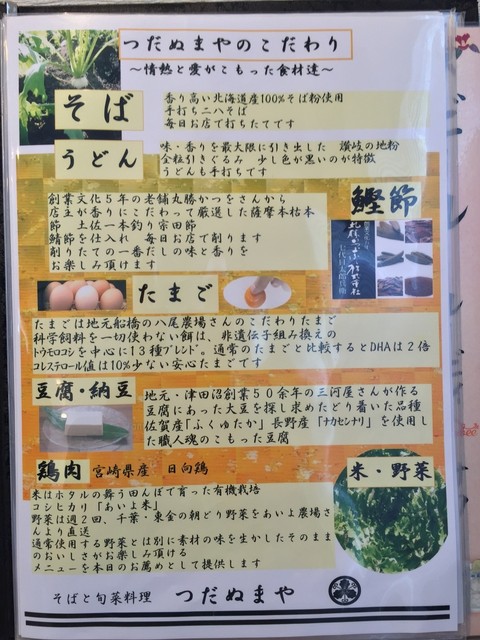 つだぬまやのこだわり
～情熱と愛がこもった食材達～
そば
香り高い北海道産100%そば粉使用
手打ち二八そば
毎日お店で打ちたてです
うどん
味・香りを最大限に引き出した 讃岐の地粉
全粒引きぐるみ 少し色が黒いのが特徴
うどんも手打ちです
鰹節
創業文化5年の老舗丸勝かつをさんから
店主が香りにこだわって厳選した薩摩本枯本
節 土佐一本釣り宗田節
鯖節を仕入れ 毎日お店で削ります
削りたての一番だしの味と香りを
お楽しみ頂けます
たまご
たまごは地元船橋の八尾農場さんのこだわりたまご
科学飼料を一切使わない餌は、非遺伝子組み換えの
トウモロコシを中心に13種ブレンド。通常のたまごと比較するとDHAは2倍
コレステロール値は10%少ない安心たまごです
豆腐・納豆
地元・津田沼創業50余年の三河屋さんが作る
豆腐にあった大豆を探し求めたどり着いた品種
佐賀産「ふくゆたか」長野産「ナカセンナリ」を使用し
た職人魂のこもった豆腐
鶏肉 宮崎県産 日向鶏
米・野菜
米はホタルの舞う田んぼで育った有機栽培
コシヒカリ「あいよ米」
野菜は週2回、千葉・東金の朝どり野菜をあいよ農場さ
んより直送
通常使用する野菜とは別に素材の味を生かしたそのまま
のおいしさがお楽しみ頂ける
メニューを本日のお薦めとして提供します
そばと旬菜料理 つだぬまや